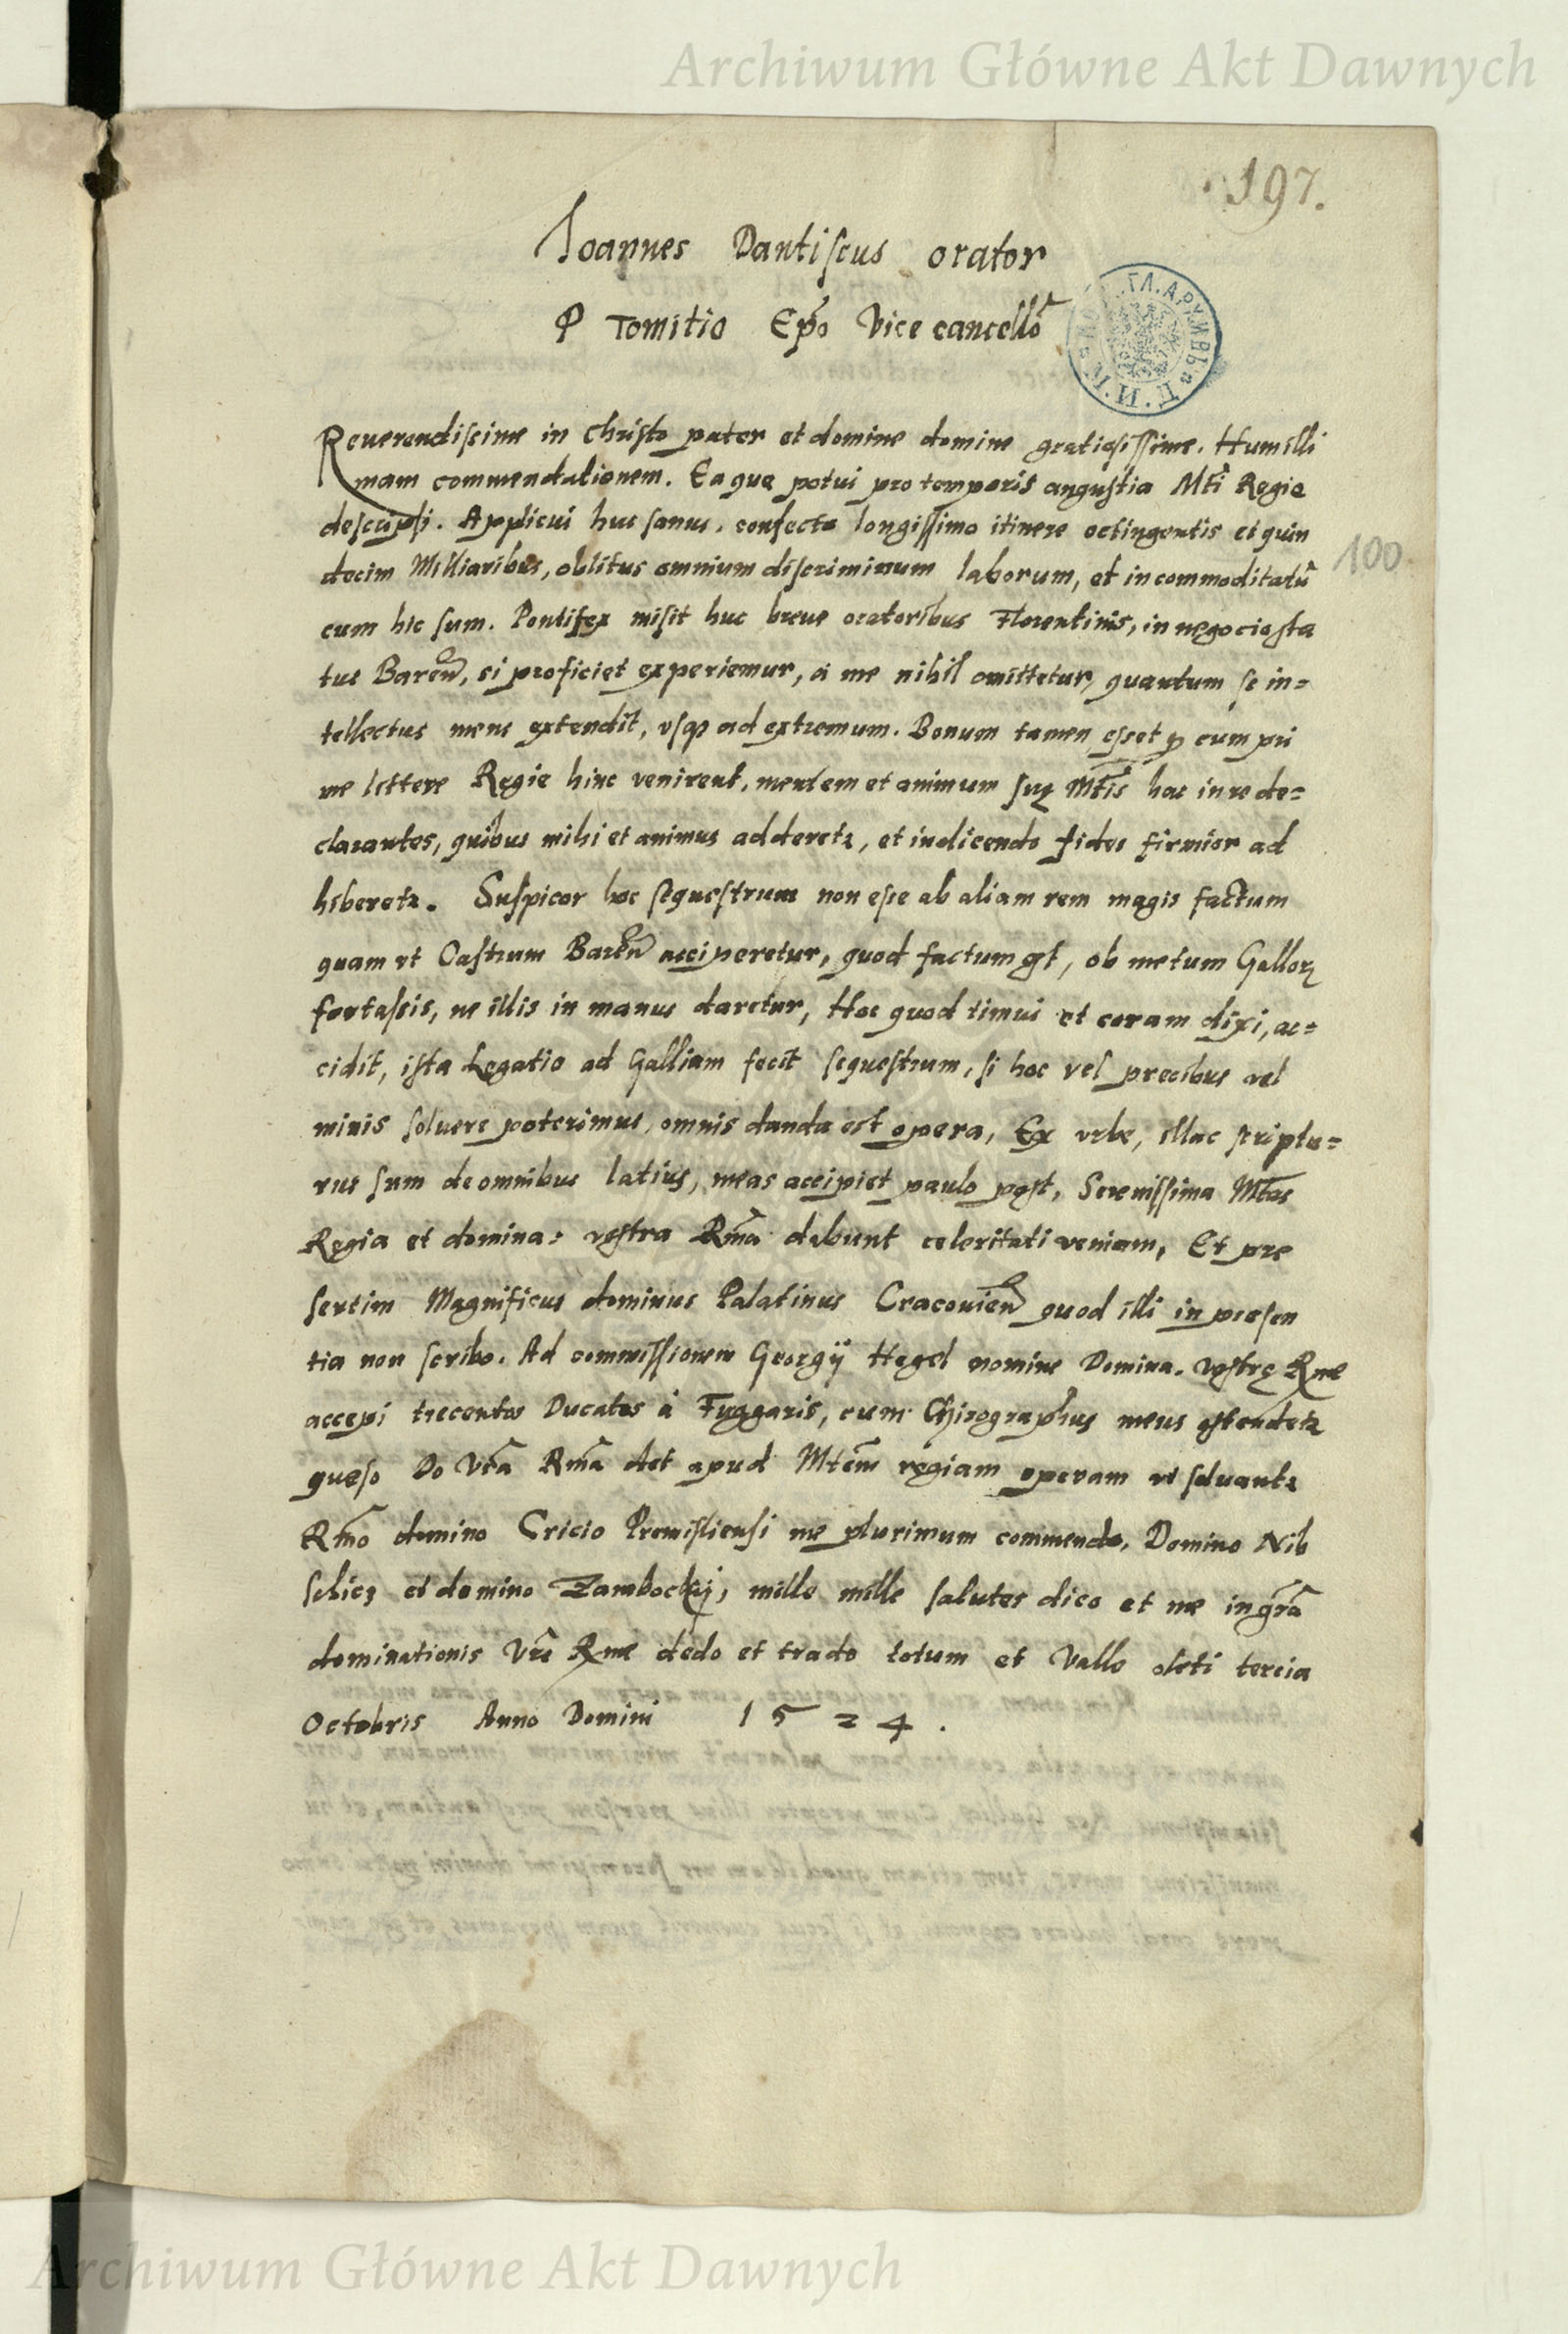 Archiwum Główne Akt Dawnych
197.
Ioannes Dantiscus orator
P Tomitio Ep̃o Vice cancellõ
Reuerendissime in Christo pater et domine domine gratiosissime. Humilli
mam commendationem. Ea que potui pro temporis angustia Mti Regie
descripsi. Applicui huc sanus, confecto longissimo itinere octingentis et quin
decim Milliaribus, oblitus omnium discriminum laborum, et incommoditatũ
100
cum hic sum. Pontifex misit huc breue oratoribus Florentinis, in negocio sta
tus Bareñ, si proficiet experiemur, a me nihil omittetur, quantum se in=
tellectus meus extendit, vsq3 ad extremum. Bonum tamen esset p cum pri
me littere Regie hinc venirent, mentem et animum suę Mtis hac in re de=
clarantes, quibus mihi et animus addereť, et in dicendo fides firmior ad
hibereť. Suspicor hoc sequestrum non esse ab aliam rem magis factum
quam vt Castrum Bareñ acciperetur, quod factum est, ob metum Galloꝝ
fortassis, ne illis in manus daretur, Hoc quod timui et coram dixi, ac=
cidit, ista Legatio ad Galliam fecit sequestrum, si hoc vel precibus vel
minis soluere poterimus, omnis danda est opera, Ex vrbe, illac scriptu=
rus sum de omnibus latius, meas accipiet paulo post, Serenissima Mtas
Regia et domina: vestra Rma dabunt celeritati veniam, Et pre
sertim Magnificus dominus Palatinus Cracouieñ quod illi in presen
tia non scribo. Ad commissionem Georgij Hegel nomine Domina. vestrę Rme
accepi trecentos Ducatos à Fuggaris, cum Chirographus meus ostendeť
queso Do Vrã Rmã det apud Mtem regiam operam vt soluanť
Rmo domino Cricio Premisliensi me plurimum commendo, Domino Nib
schicz et domino Zambockij, mille mille salutes dico et me in grã
dominationis Vrẽ Rme dedo et trado totum et Valle oleti tercia
Octobris Anno Domini 1524.
Archiwum Główne Akt Dawnych